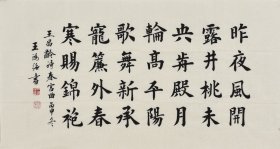 昨夜風開
露井桃未
央歬殿月
輪高平陽
歌舞新承
寵簾外春
寒賜錦袍
王昌齡詩春宫曲 丙申冬
王海書